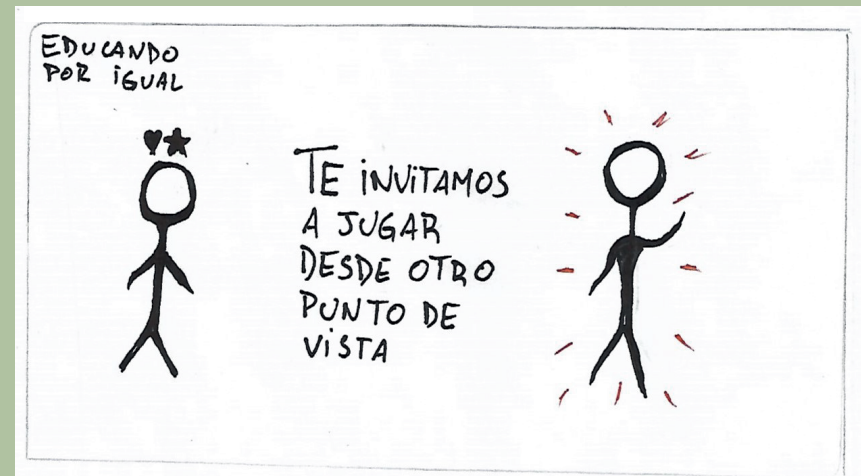 EDUCANDO
POR iGUAL
TE iNViTAMOS
A JUGAR
DESDE OTRO
PUNTO DE
ViSTA